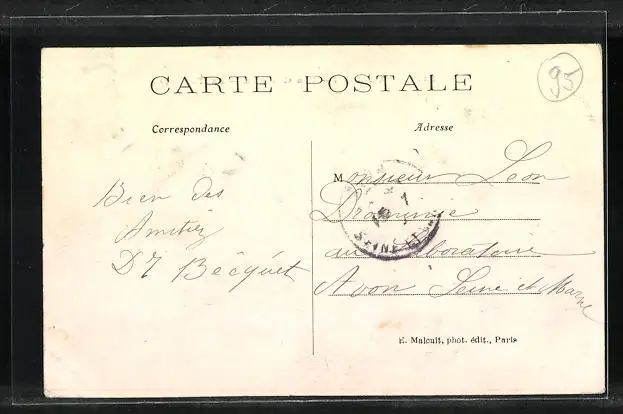 95
CARTE POSTALE
Correspondance
Adresse
Bien des
Amitiés
Becquet
Monsieur Léon
au Laboratoire
Avon Seine et Marne
SEINE-ET-M
E. Malcuit, phot. édit., Paris